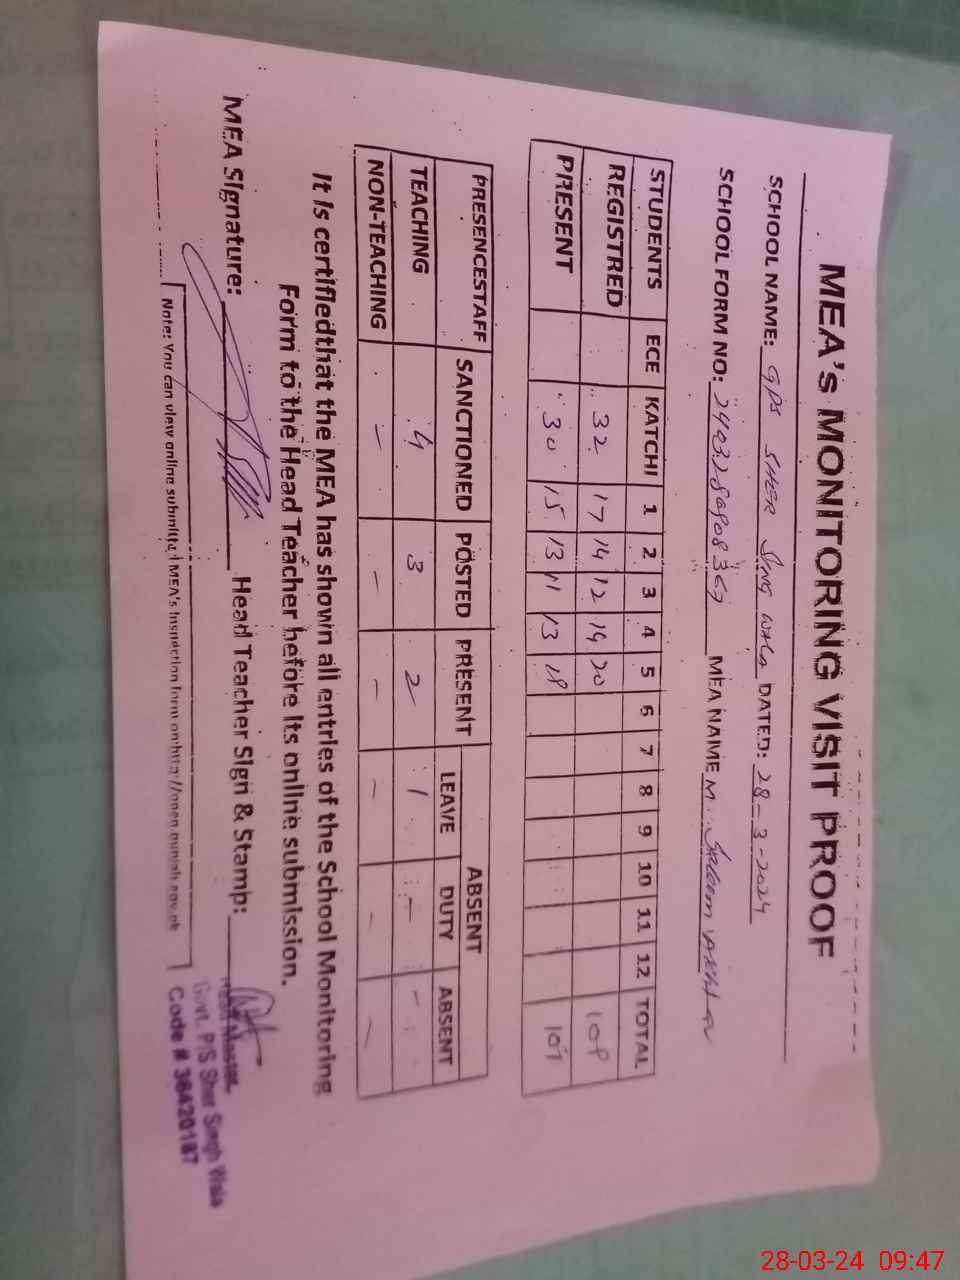 MEA's MONITORING VISIT PROOF
SCHOOL NAME: GPS SHER Sing wala DATED: 28-3-2024
SCHOOL FORM NO: MEA NAME M. Saleem Akhtar
STUDENTS ECE KATCHI 1 2 3 4 5 6 7 8 9 10 11 12 TOTAL
REGISTRED 32 17 14 12 14 20 109
PRESENT 30 15 13 11 13 19 101
PRESENCESTAFF SANCTIONED POSTED PRESENT ABSENT
LEAVE DUTY ABSENT
TEACHING 4 3 2 1 - -
NON-TEACHING - - - - - -
It is certifiedthat the MEA has shown all entries of the School Monitoring
Form to the Head Teacher before its online submission.
MEA Signature: Head Teacher Sign & Stamp:
Head Master
Govt. P/S Sher Singh Wala
Code # 36420187
Note: You can view online submitted MEA's Inspection form on http://open.punjab.gov.pk
28-03-24 09:47